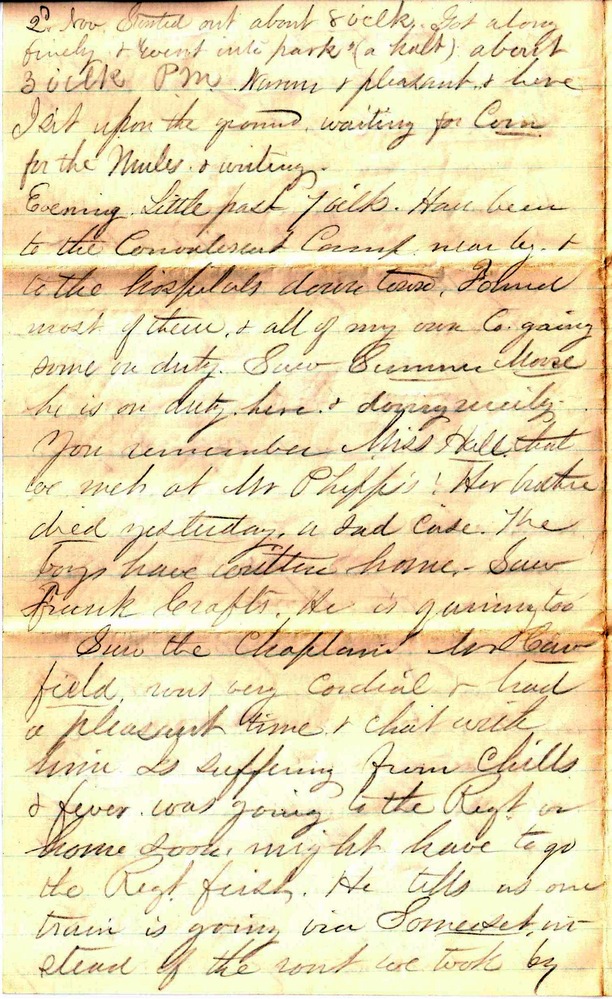 2d Nov. Started out about 8 oclk. Got along
finely & went into park (a halt) about
3 oclk PM. Warm & pleasant, & here
I sit upon the ground, waiting for Corn
for the Mules. & writing.
Evening. Little past 7 oclk. Have been
to the Convalescent Camp near by. &
to the hospitals down town. Found
most of them, & all of my own Co. gaing
some on duty. Saw Sumner Morse
he is on duty here. & doing nicely.
You remember Miss Hall that
we met at Mr Phipps'! Her brother
died yesterday. a sad case. The
boys have written home. - Saw
Frank Crafts. He is gaining too
Saw the Chaplain Mr
field was very cordial & had
a pleasant time & chat with
him Is suffering from Chills
& fever. was going to the Regt. or
home soon. might have to go
the Regt. first. He tells us our
train is going via Somerset, in-
stead of the rout we took by